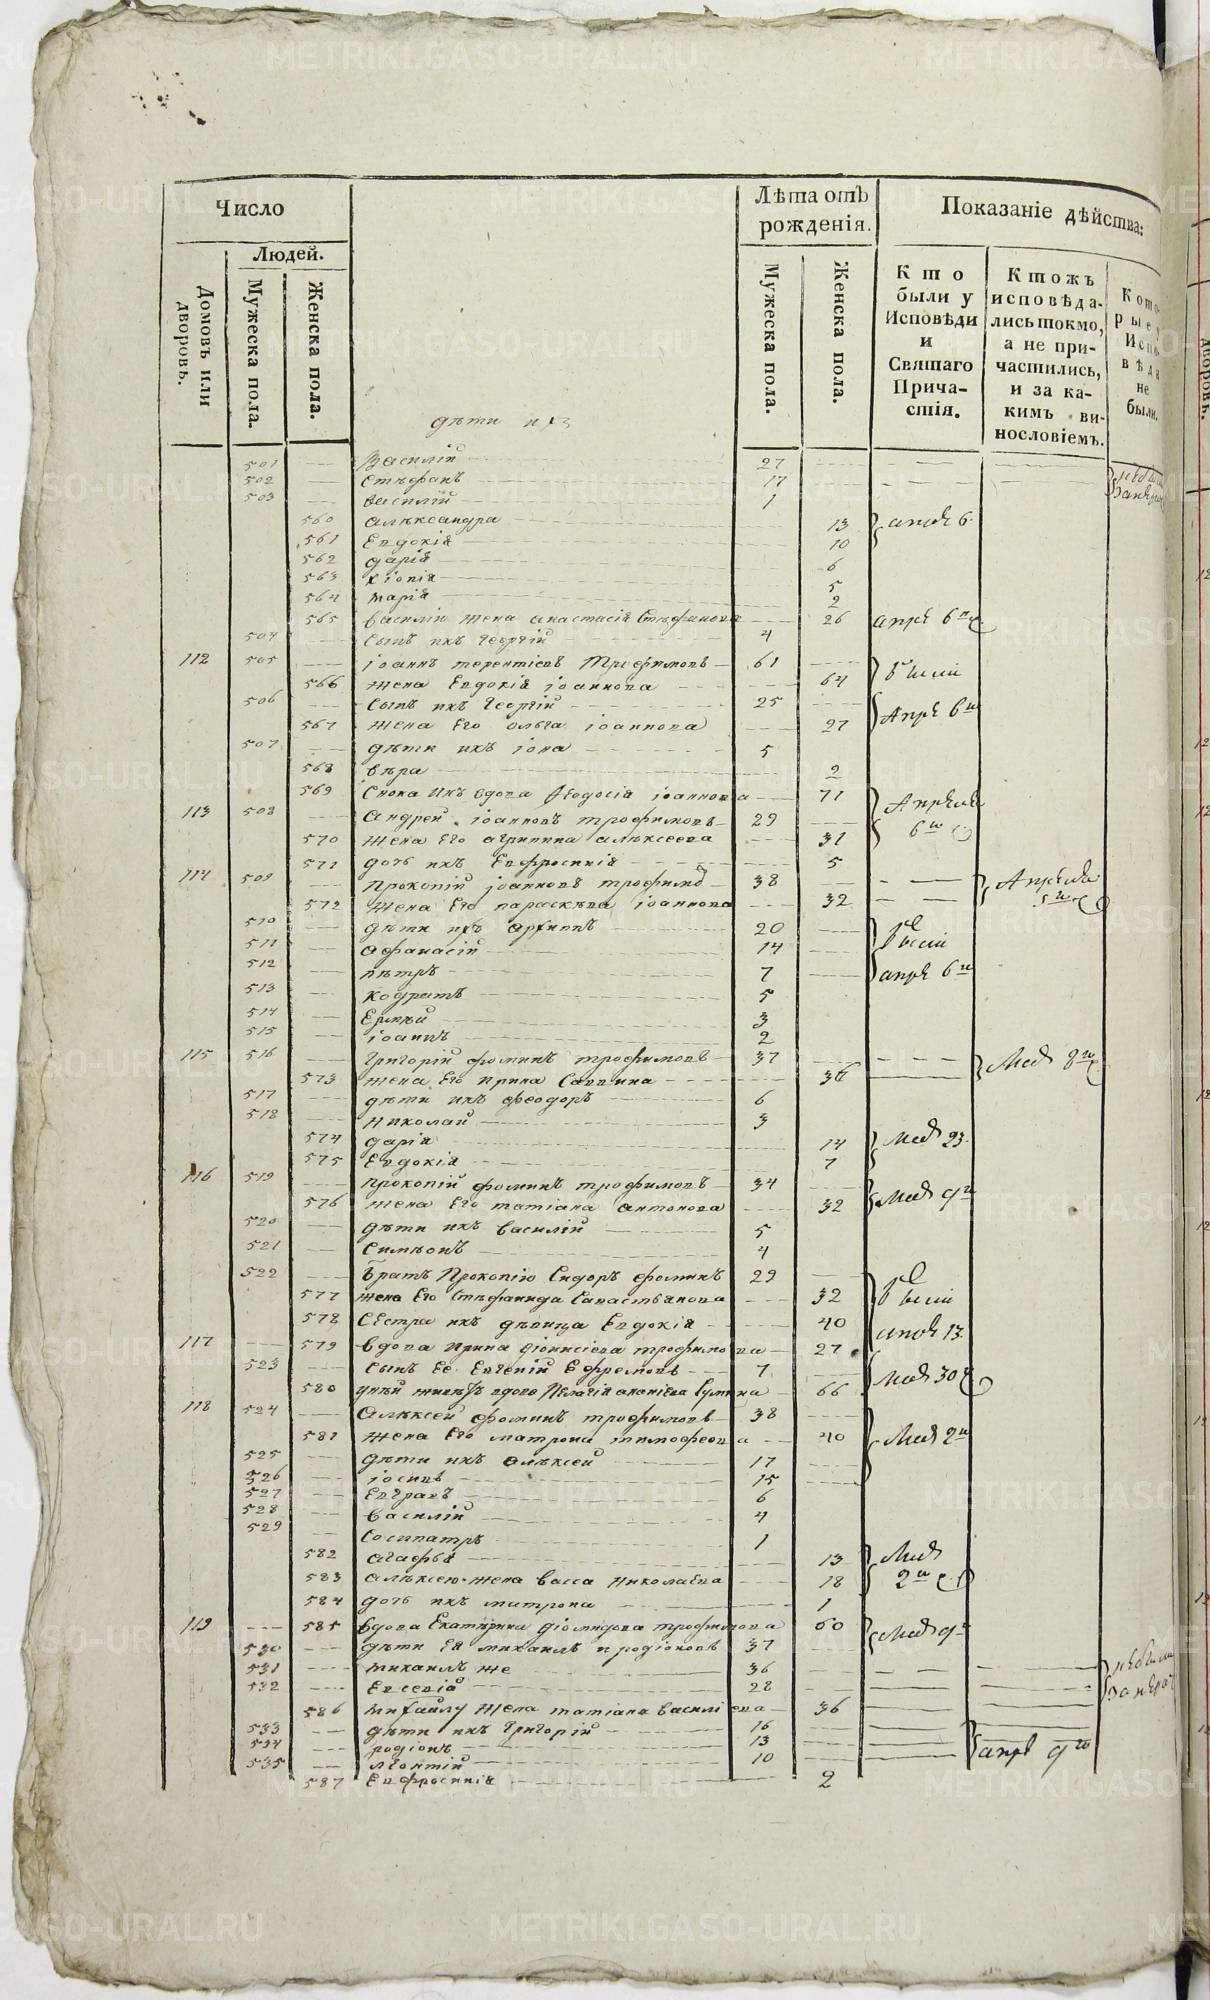 Число
Лѣта отъ рожденія.
Показаніе дѣйства:
Людей.
Домовъ или дворовъ.
Мужеска пола.
Женска пола.
Мужеска пола.
Женска пола.
Кто были у Исповѣди и Святаго Причастія.
Ктожъ исповѣдались токмо, а не причастились, и за какимъ винословіемъ.
дѣти их
501 Василій 27
502 Стѣфанъ 17
503 Василій 1
560 Алѣксандра 13
561 Евдокія 10
562 дарія 6
563 хіонія 5
564 марія 2
565 Василію жена анастасія Стѣфанова 26
504 Сынъ ихъ Георгій 4
112 505 іоаннъ терентіевъ Трофимовъ 61
566 жена Евдокія іоаннова 64
506 Сынъ ихъ Георгій 25
567 жена Его ольга іоаннова 27
507 дѣти ихъ іона 5
568 вѣра 2
569 Сноха Ихъ вдова Феодосія іоаннова 71
113 508 Андрей іоанновъ трофимовъ 29
570 жена Его агрипина алѣксеева 31
571 дочь ихъ Евфросинія 5
114 509 Прокопій іоанновъ трофимо 38
572 жена Его параскѣва іоаннова 32
510 дѣти ихъ архипъ 20
511 Афанасій 14
512 пѣтръ 7
513 кодратъ 5
514 Ермѣй 3
515 іоаннъ 2
115 516 Григорій фоминъ трофимовъ 37
573 жена Его ирина Саввина 36
517 дѣти ихъ феодоръ 6
518 николай 3
574 дарія 14
575 Евдокія 7
116 519 прокопій фоминъ трофимовъ 34
576 жена Его татіана антонова 32
520 дѣти ихъ василій 5
521 Симѣонъ 4
522 братъ Прокопію Сидоръ фоминъ 29
577 жена Его Стѣфанида Савастьянова 32
578 Сѣстра ихъ дѣвица Евдокія 40
117 579 вдова ирина діонисіева трофимова 27
523 Сынъ Ее Евгеній Ефремовъ 7
580 вдова Пелагія 66
118 524 Алѣксей фоминъ трофимовъ 38
581 жена Его матрона тимофеева 40
525 дѣти ихъ алѣксей 17
526 іосифъ 15
527 Евграфъ 6
528 василій 4
529 Сосипатръ 1
582 агафья 13
583 алѣксею жена васса николаева 18
584 дочь ихъ матрона 1
119 585 вдова Екатѣрина діомидова трофимова 60
530 дѣти Ея михаилъ родіоновъ 37
531 михаилъ же 36
532 Евсевій 28
586 михаилу жена татіана василіева 36
533 дѣти ихъ григорій 16
534 родіонъ 13
535 лѣонтій 10
587 Евфросинія 2